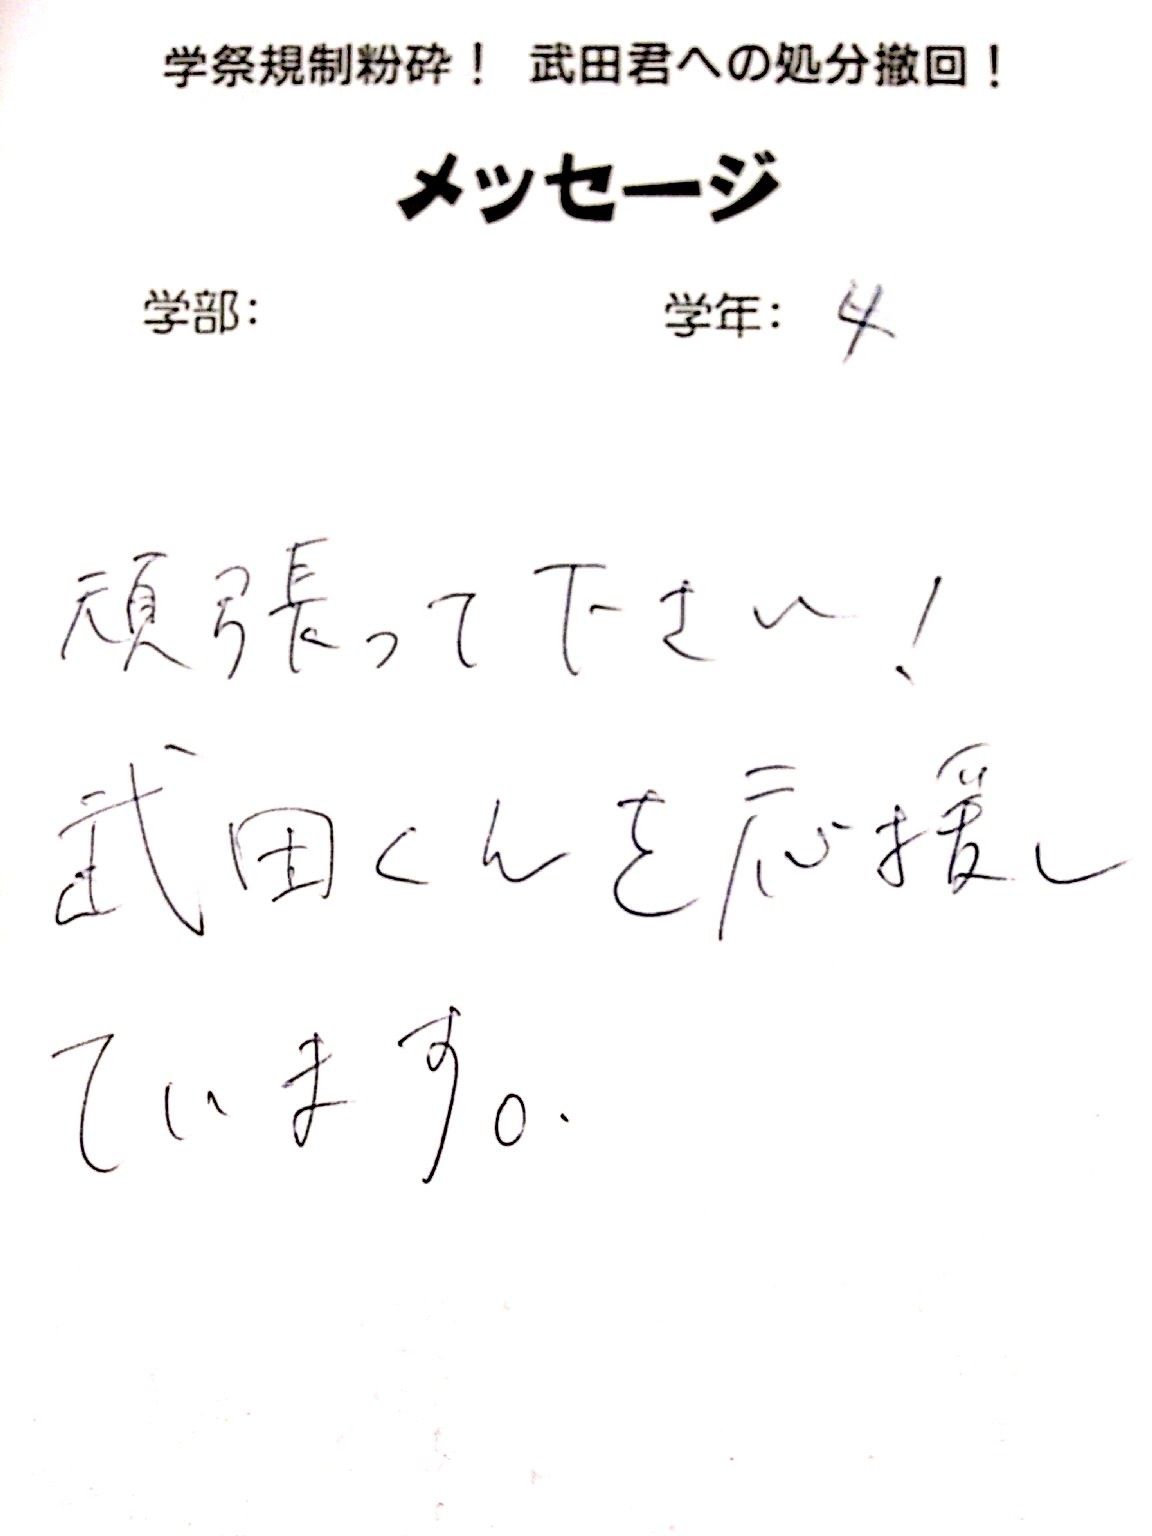 学祭規制粉砕！ 武田君への処分撤回！
メッセージ
学部： 学年： 4
頑張って下さい！
武田くんを応援し
ています。